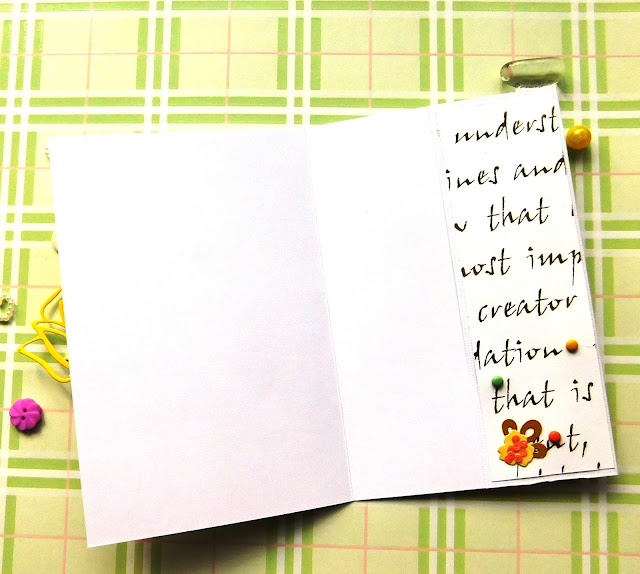 underst
ines and
that
ost imp
creator
dation
that is
nt,